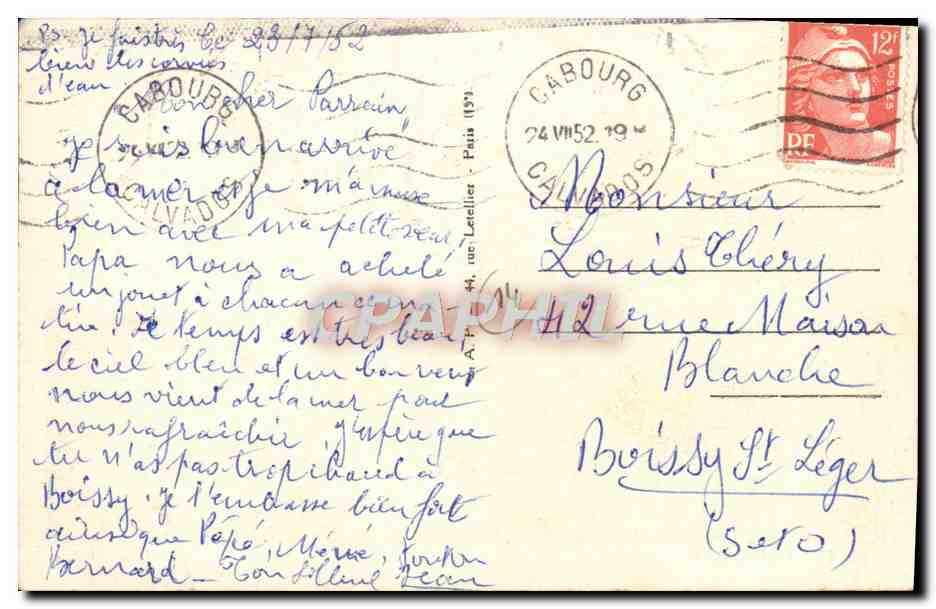 PS je fais très Ce 23/7/52
bien les corvées
d'eau
Mon cher Parrain,
je suis bien arrivé
à la mer et je m'amuse
bien avec ma petite sœur,
Papa nous a acheté
un jouet à chacun
Le temps est très beau
le ciel bleu et un bon vent
nous vient de la mer pour
nous rafraîchir. J'espère que
tu n'as pas trop chaud à
Boissy. Je t'embrasse bien fort
ainsi que Pépé, Mémé, tonton
Bernard - Ton filleul Jean
CABOURG
CALVADOS
44, rue Letellier - Paris (15e)
CABOURG
24 VII 52 19
CALVADOS
12f
POSTES
RF
Monsieur
Louis Théry
42 rue Maison
Blanche
Boissy St Léger
(S et O)
14
CPAPHIL